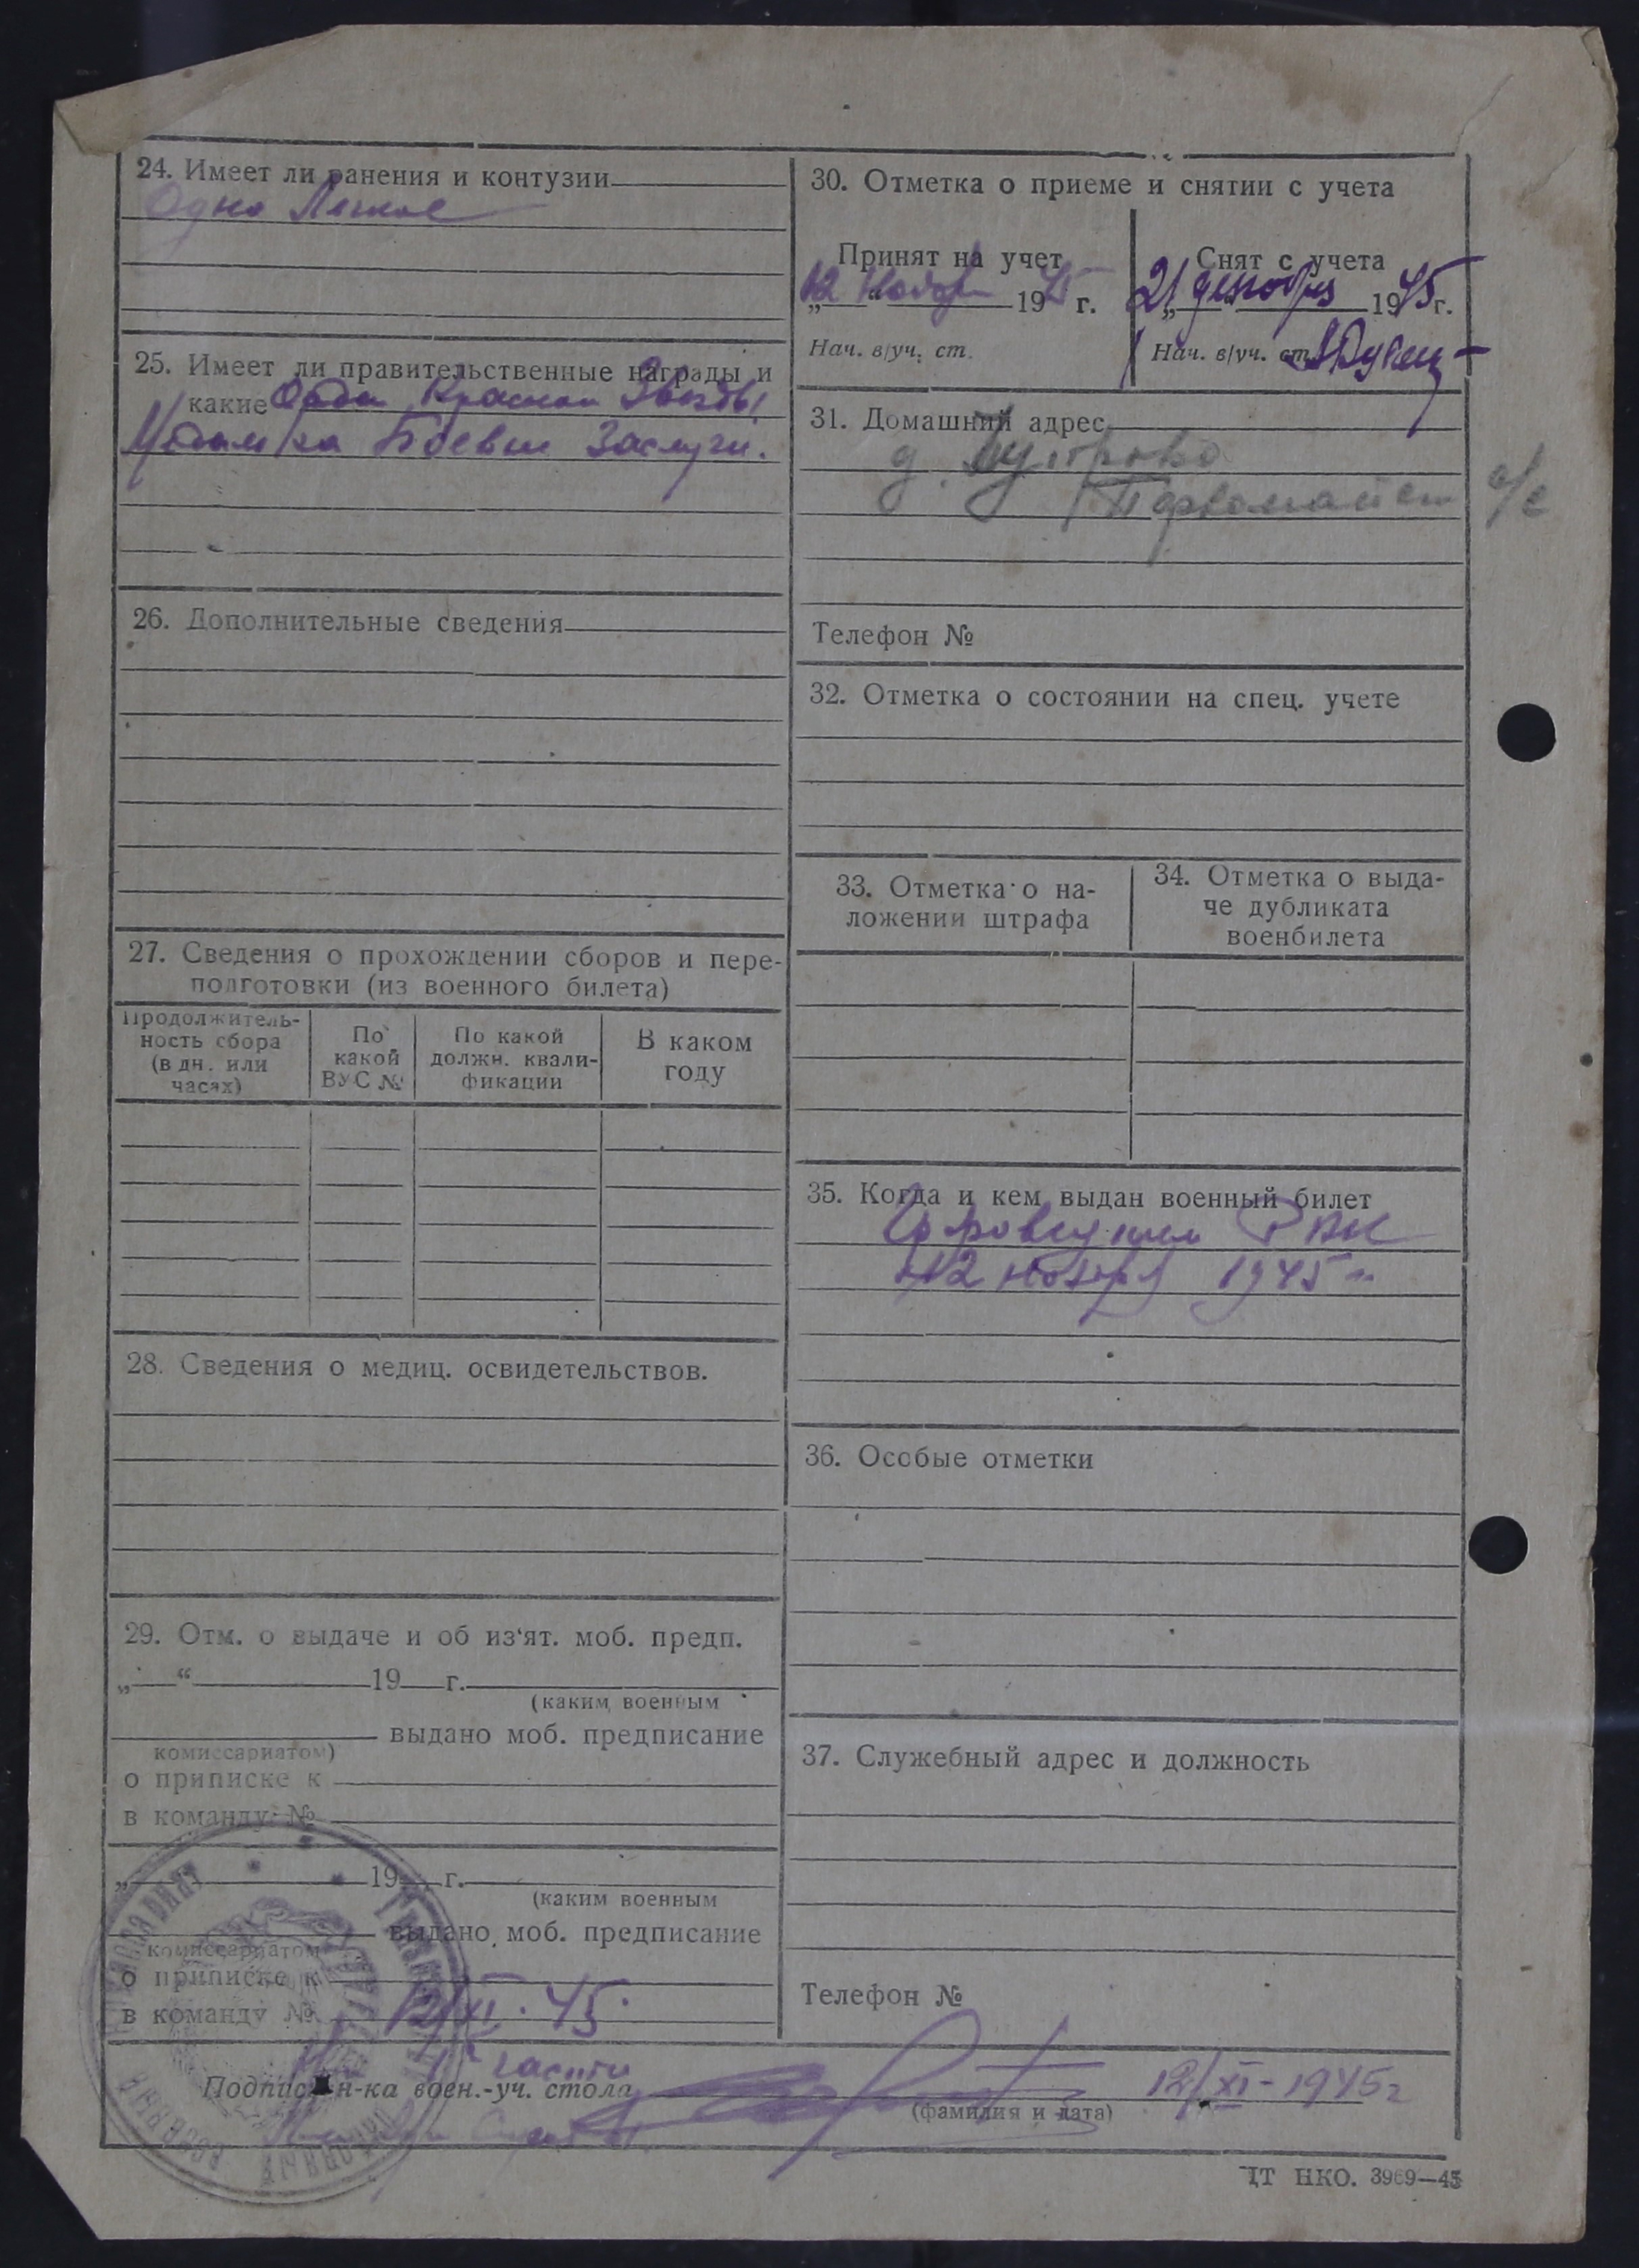 24. Имеет ли ранения и контузии
Одно Легкое
25. Имеет ли правительственные награды и
какие Орден Красной Звезды
Медаль за Боевые Заслуги.
26. Дополнительные сведения
27. Сведения о прохождении сборов и пере-
подготовки (из военного билета)
Продолжитель-
ность сбора
(в дн. или
часах)
По
какой
ВУС №
По какой
должн. квали-
фикации
В каком
году
28. Сведения о медиц. освидетельствов.
29. Отм. о выдаче и об из‘ят. моб. предп.
„ “ 19 г.
(каким военным
выдано моб. предписание
комиссариатом)
о приписке к
в команду №
„ 19 г.
(каким военным
выдано моб. предписание
комиссариатом
о приписке к
в команду №
12/XI.45.
30. Отметка о приеме и снятии с учета
Принят на учет
„12 ноября 1945 г.
Нач. в/уч. ст.
Снят с учета
„21 декабря 1945 г.
Нач. в/уч. ст.
31. Домашний адрес
д.
Первомайск с/с
Телефон №
32. Отметка о состоянии на спец. учете
33. Отметка о на-
ложении штрафа
34. Отметка о выда-
че дубликата
военбилета
35. Когда и кем выдан военный билет
РВК
12 ноября 1945 г.
36. Особые отметки
37. Служебный адрес и должность
Телефон №
части
Подпись н-ка воен.-уч. стола 12/XI-1945г
(фамилия и дата)
ЦТ НКО. 3969—45